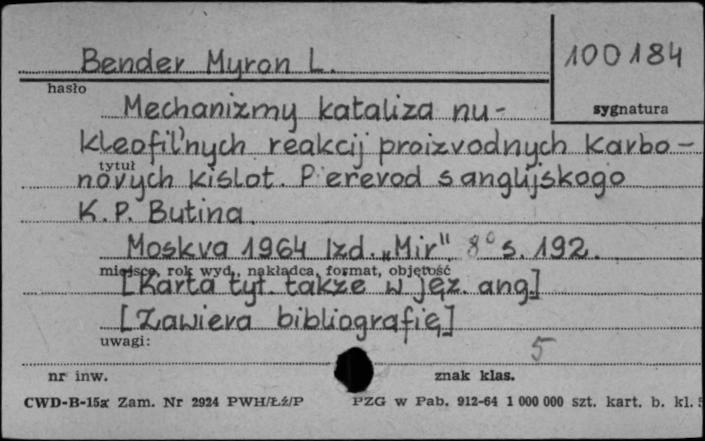 Bender Myron L.
100184
hasło
sygnatura
Mechanizmy kataliza nu-
kleofil'nych reakcij proizvodnych karbo-
tytuł
novych kislot. Perevod s anglijskogo
K.P. Butina.
Moskva 1964 Izd. „Mir" 8° s. 192.
miejsce, rok wyd., nakładca, format, objętość
[Karta tyt. także w jęz. ang.]
[Zawiera bibliografię]
uwagi:
5
nr inw.
znak klas.
CWD-B-15a Zam. Nr 2924 PWH/Łź/P
PZG w Pab. 912-64 1 000 000 szt. kart. b. kl. 5